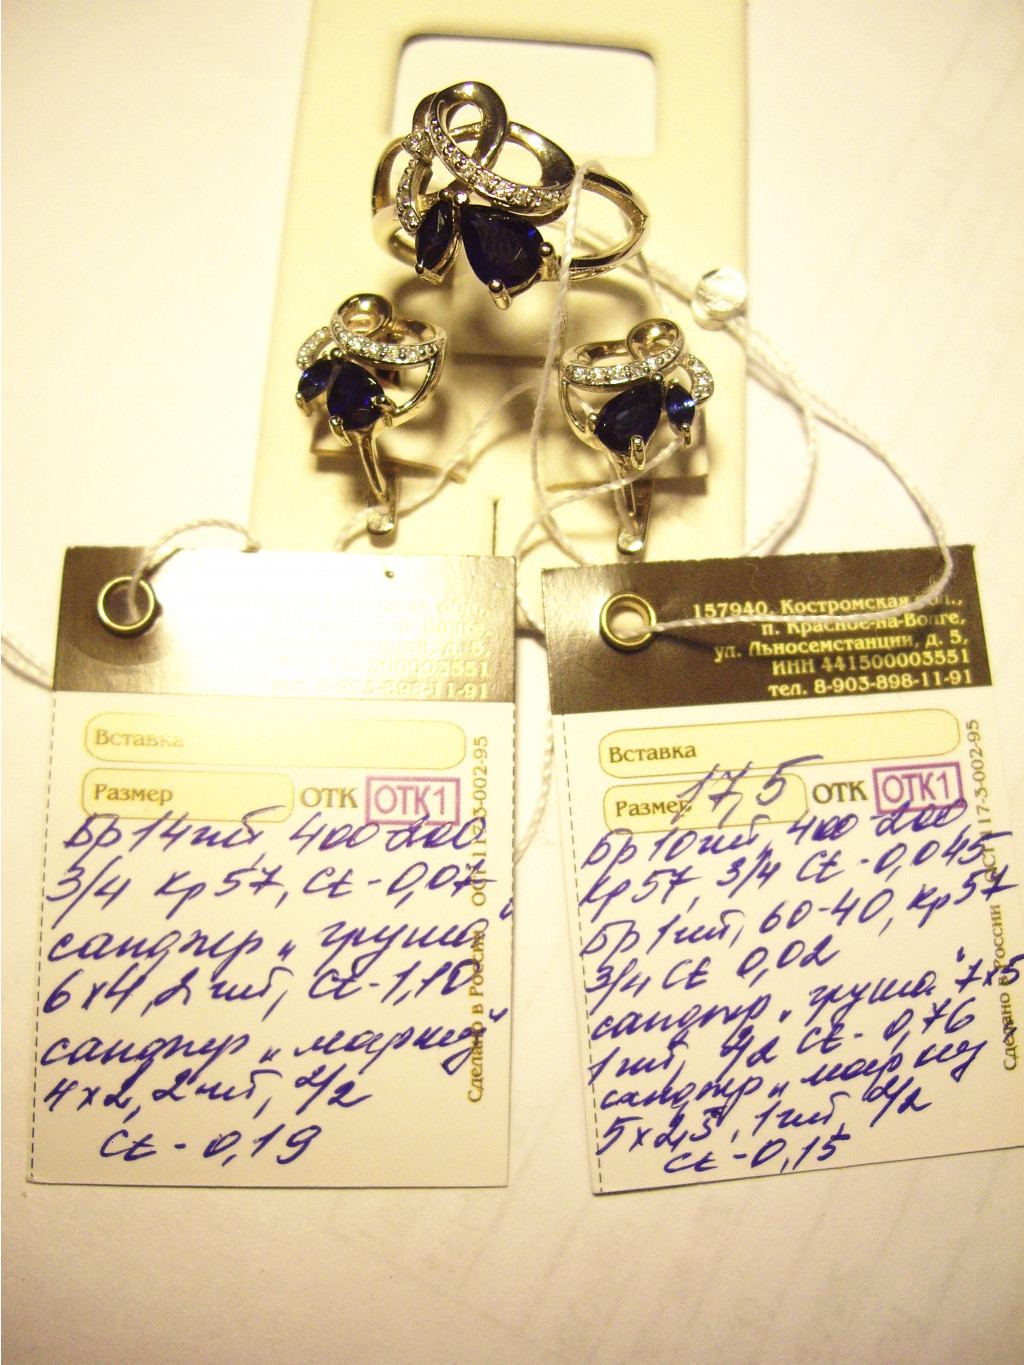 тел. 8-903-898-11-91
Вставка
Размер
ОТК ОТК1
Бр 14шт 400-200
3/4 Кр57, Ct-0,07
сапфир „груша“
6х4, 2шт, Ct-1,10
сапфир „маркиз“
4х2, 2шт, 2/2
Ct-0,19
Сделано в России
157940, Костромская обл.,
п. Красное-на-Волге,
ул. Льносемстанции, д. 5,
ИНН 441500003551
тел. 8-903-898-11-91
Вставка
Размер 17,5
ОТК ОТК1
Бр 10шт, 400-200
Кр57, 3/4 Ct-0,045
Бр 1шт, 60-40, Кр57
3/4 Ct 0,02
сапфир „груша“ 7х5
1шт, 2/2 Ct-0,76
сапфир „маркиз“
5х2,5, 1шт, 2/2
Ct-0,15
Сделано в России